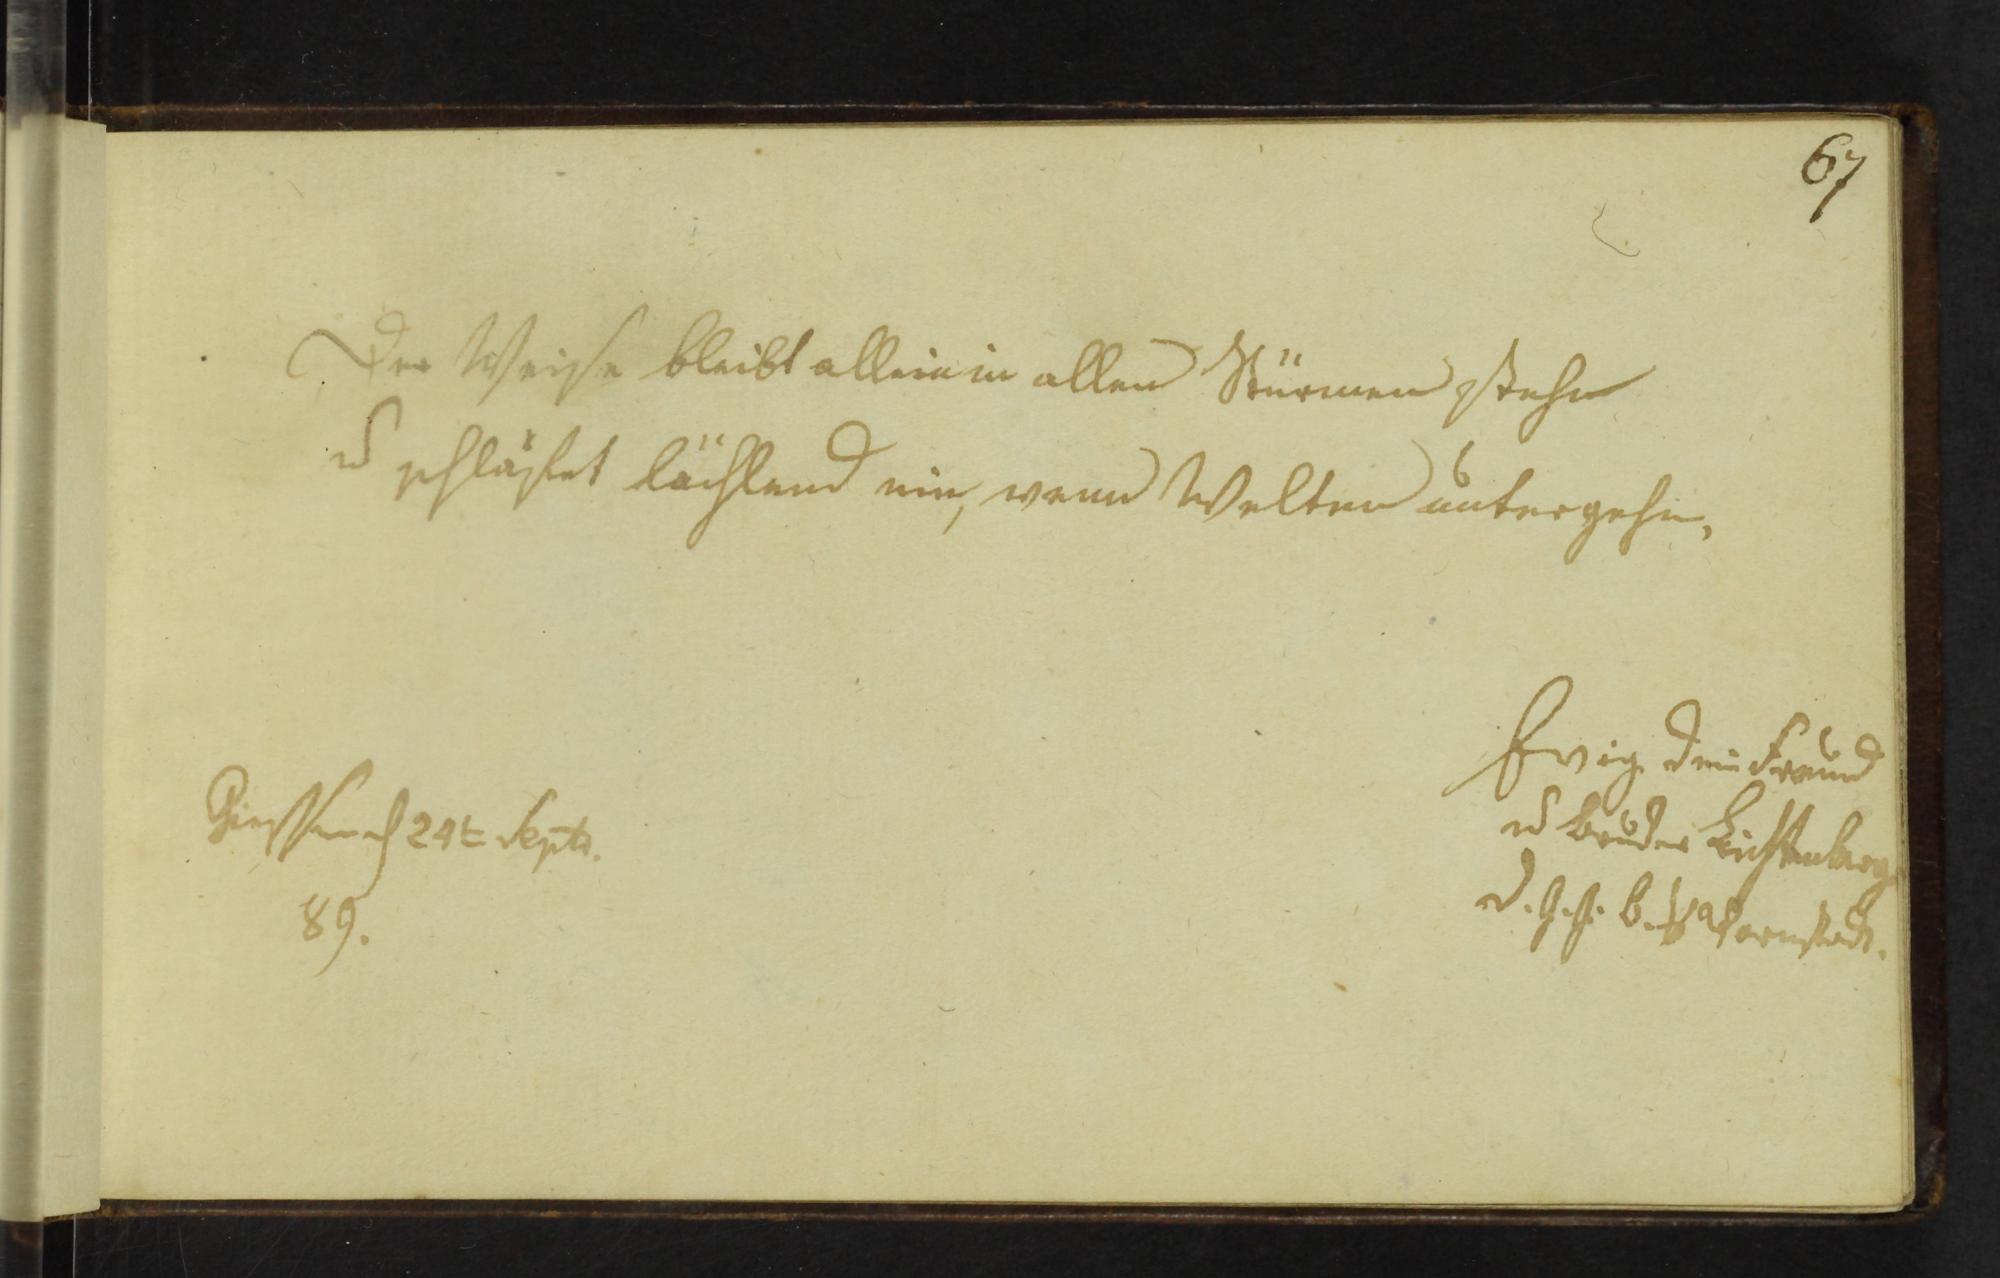 67
Der Weise bleibt allein in allen Stürmen stehn
u schläfet lächlend ein, wenn Welten untergehn.
Giessen d 24t Septr.
89.
Ewig dein Freund
u Bruder Lichtenberg
d. G. G. B. a Darmstadt.